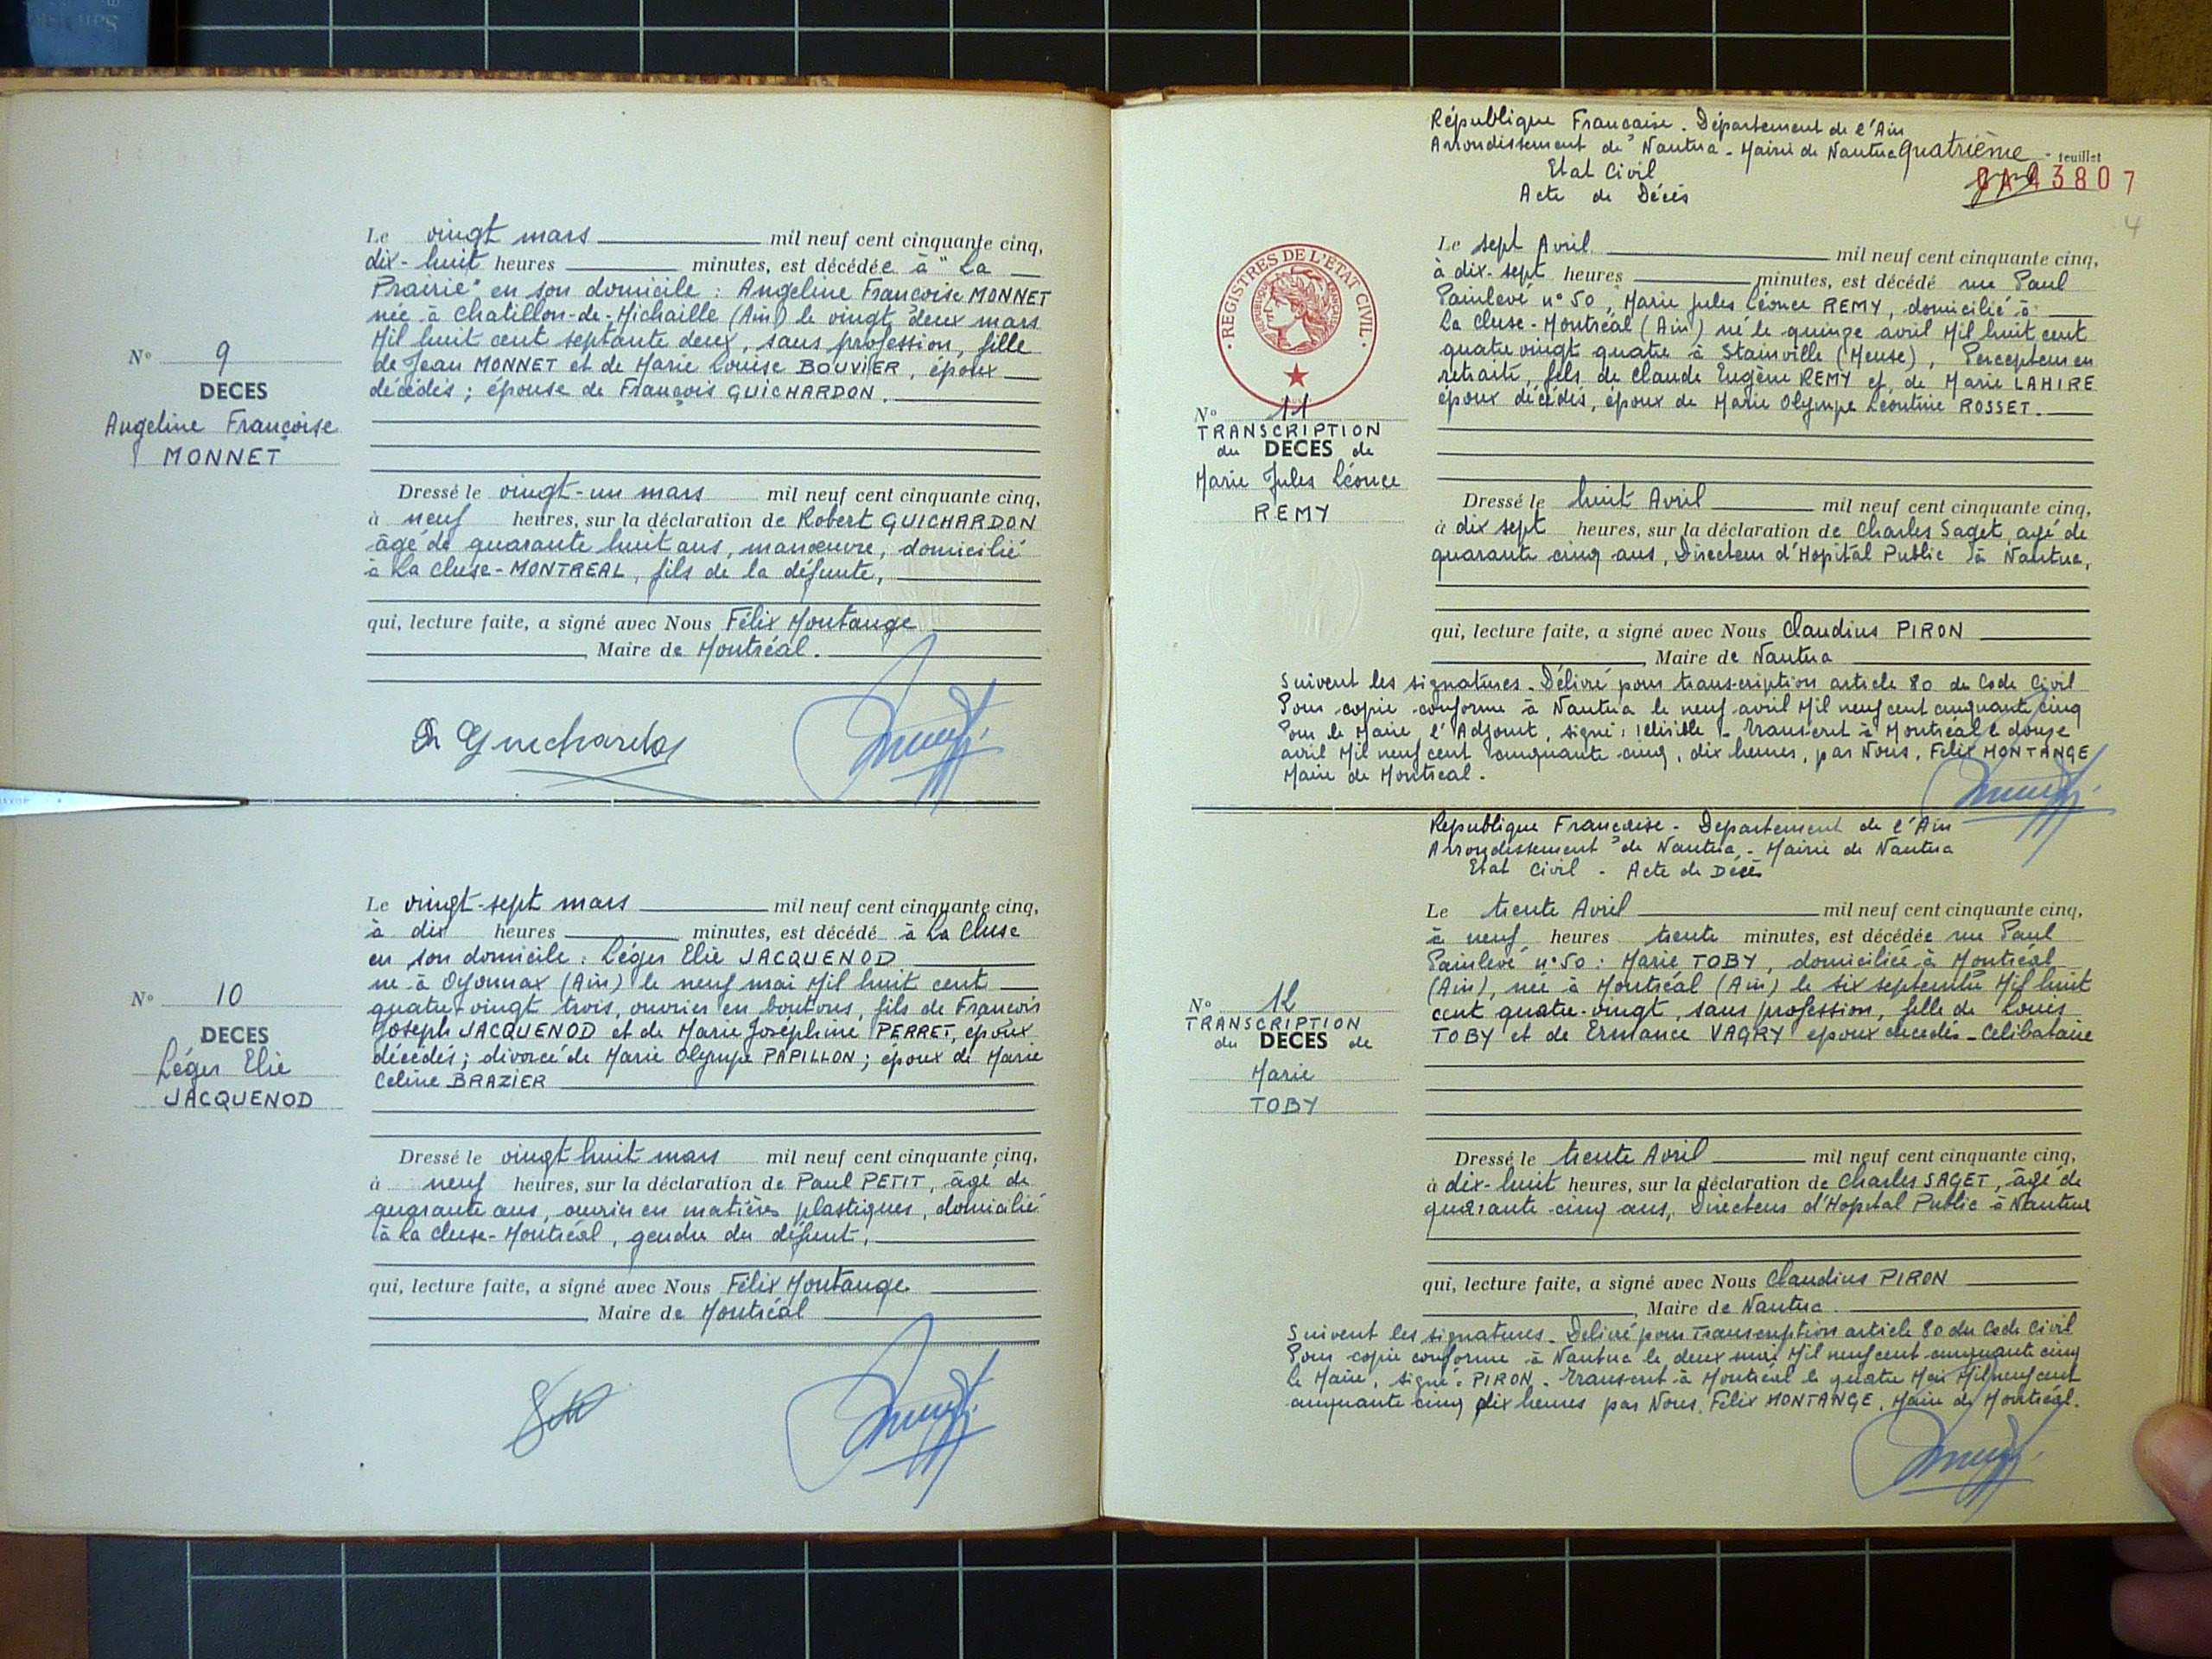 Le vingt mars mil neuf cent cinquante cinq,
dix-huit heures minutes, est décédée à "La
Prairie" en son domicile : Angeline Françoise MONNET
née à Chatillon-de-Michaille (Ain) le vingt deux mars
Mil huit cent septante deux, sans profession, fille
de Jean MONNET et de Marie Louise BOUVIER, époux
décédés ; épouse de François GUICHARDON.
N° 9
DECES
Angeline Françoise
MONNET
Dressé le vingt-un mars mil neuf cent cinquante cinq,
à neuf heures, sur la déclaration de Robert GUICHARDON
âgé de quarante huit ans, manœuvre, domicilié
à La Cluse-MONTREAL, fils de la défunte,
qui, lecture faite, a signé avec Nous Félix Montange
Maire de Montréal.
Guichardon
Le vingt-sept mars mil neuf cent cinquante cinq,
à dix heures minutes, est décédé à La Cluse
en son domicile : Léger Elie JACQUENOD
né à Oyonnax (Ain) le neuf mai Mil huit cent
quatre-vingt trois, ouvrier en boutons, fils de François
Joseph JACQUENOD et de Marie Joséphine PERRET, époux
décédés ; divorcé de Marie Olympe PAPILLON ; époux de Marie
Celine BRAZIER
N° 10
DECES
Léger Elie
JACQUENOD
Dressé le vingt huit mars mil neuf cent cinquante cinq,
à neuf heures, sur la déclaration de Paul PETIT, âgé de
quarante ans, ouvrier en matières plastiques, domicilié
à La Cluse-Montréal, gendre du défunt,
qui, lecture faite, a signé avec Nous Félix Montange
Maire de Montréal
République Française - Département de l'Ain
Arrondissement de Nantua - Mairie de Nantua Quatrième feuillet
Etat Civil
Acte de Décès
43807
4
REGISTRES DE L'ETAT CIVIL
Le sept Avril mil neuf cent cinquante cinq,
à dix-sept heures minutes, est décédé rue Paul
Painlevé n° 50, Marie Jules Léonce REMY, domicilié à
La Cluse-Montréal (Ain) né le quinze avril Mil huit cent
quatre vingt quatre à Stainville (Meuse), Percepteur en
retraite, fils de Claude Eugène REMY et de Marie LAHIRE
époux décédés, époux de Marie Olympe Léontine ROSSET.
N° 11
TRANSCRIPTION
du DECES de
Marie Jules Léonce
REMY
Dressé le huit Avril mil neuf cent cinquante cinq,
à dix sept heures, sur la déclaration de Charles Saget, agé de
quarante cinq ans, Directeur d'Hopital Public à Nantua,
qui, lecture faite, a signé avec Nous Claudius PIRON
Maire de Nantua
Suivent les signatures - Délivré pour transcription article 80 du Code Civil
Pour copie conforme à Nantua le neuf avril Mil neuf cent cinquante cinq
Pour le Maire, l'Adjoint, signé : illisible - Transcrit à Montréal le douze
avril Mil neuf cent cinquante cinq, dix heures, par Nous, Felix MONTANGE
Maire de Montréal.
République Française - Departement de l'Ain
Arrondissement de Nantua - Mairie de Nantua
Etat Civil - Acte de Décès
Le trente Avril mil neuf cent cinquante cinq,
à neuf heures trente minutes, est décédée rue Paul
Painlevé n° 50 : Marie TOBY, domiciliée à Montréal
(Ain), née à Montréal (Ain) le six septembre Mil huit
cent quatre-vingt, sans profession, fille de Louis
TOBY et de Ermance VAGRY époux décédés - Celibataire
N° 12
TRANSCRIPTION
du DECES de
Marie
TOBY
Dressé le trente Avril mil neuf cent cinquante cinq,
à dix-huit heures, sur la déclaration de Charles SAGET, âgé de
quarante-cinq ans, Directeur d'Hopital Public à Nantua
qui, lecture faite, a signé avec Nous Claudius PIRON
Maire de Nantua
Suivent les signatures - Délivré pour Transcription article 80 du Code Civil
Pour copie conforme à Nantua le deux mai Mil neuf cent cinquante cinq
le Maire, signé : PIRON - Transcrit à Montréal le quatre Mai Mil neuf cent
cinquante cinq dix heures par Nous, Félix MONTANGE, Maire de Montréal.